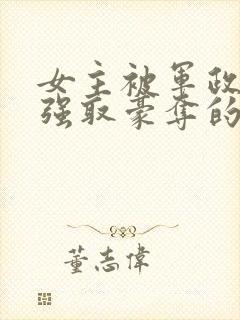 女主被军政
强取豪夺的
董志偉